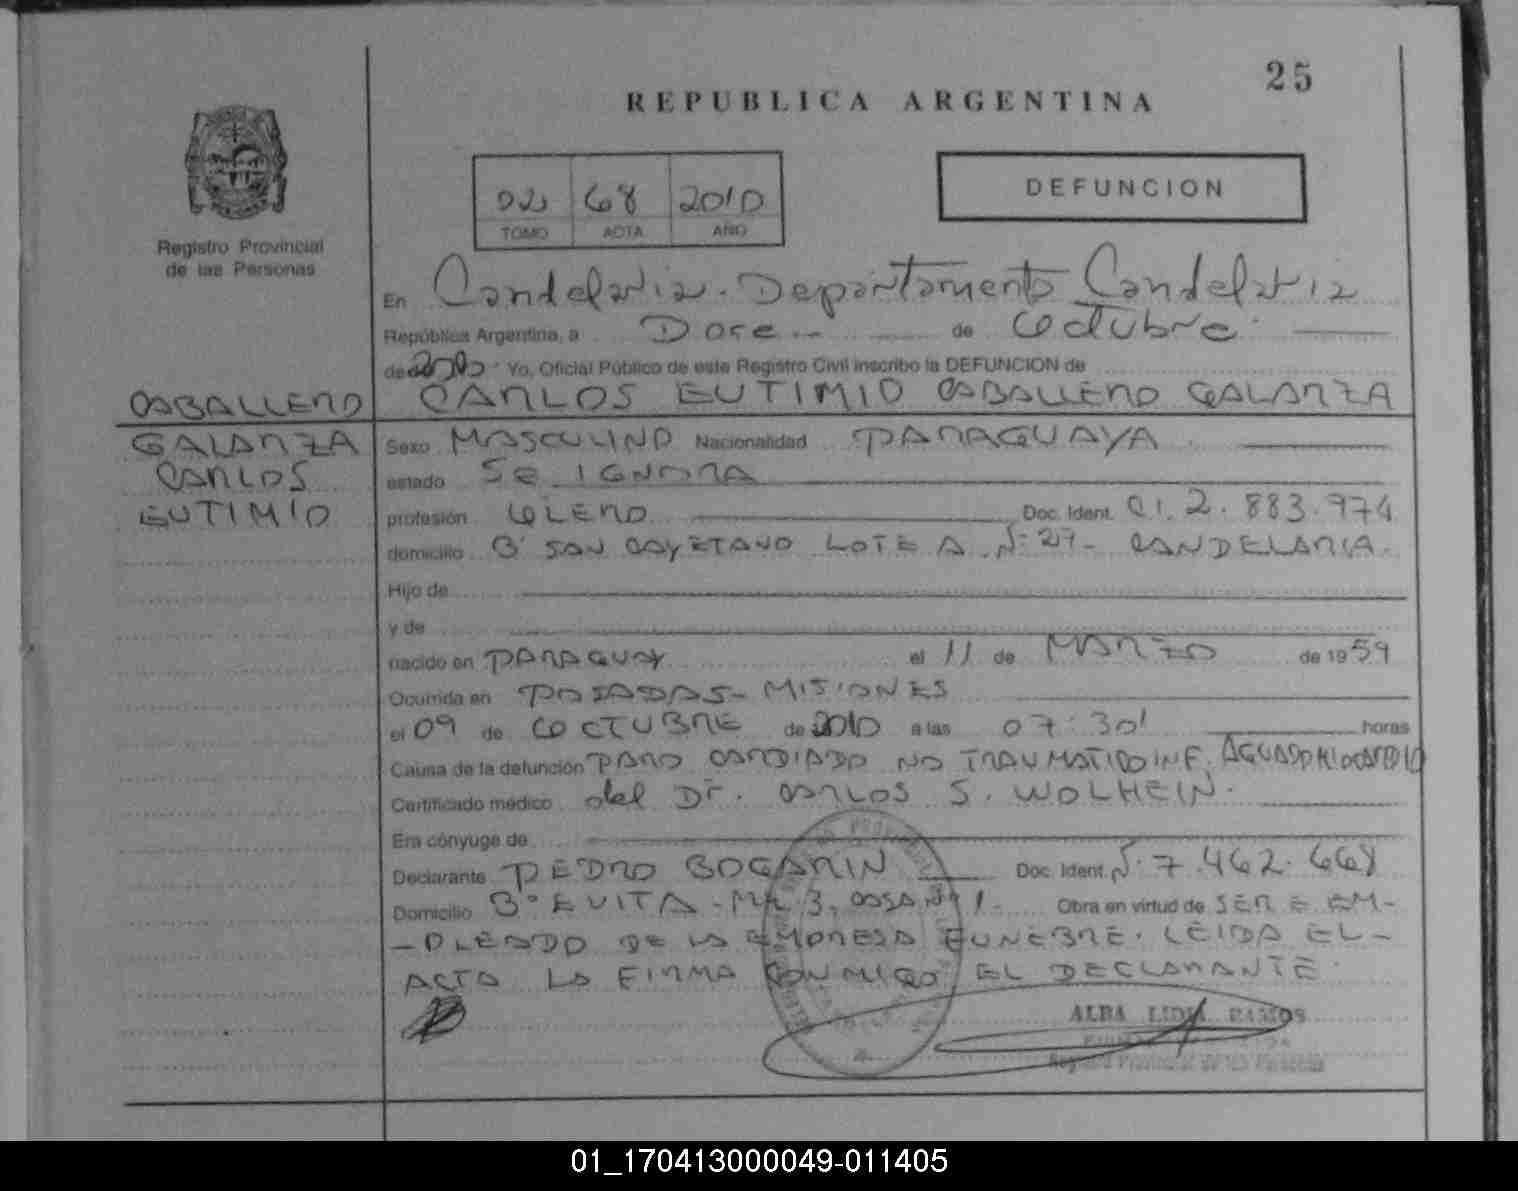 25
REPUBLICA ARGENTINA
DEFUNCION
02 68 2010
TOMO ACTA AÑO
Registro Provincial
de las Personas
En Candelaria - Departamento Candelaria
República Argentina, a Doce de Octubre
de 2010 Yo, Oficial Público de este Registro Civil inscribo la DEFUNCION de
CABALLERO CARLOS EUTIMIO CABALLERO GALARZA
GALARZA Sexo MASCULINO Nacionalidad PARAGUAYA
CARLOS estado SE IGNORA
EUTIMIO profesión OLERO Doc. Ident. CI. 2.883.974
domicilio B° SAN CAYETANO LOTE A N° 27 - CANDELARIA
Hijo de
y de
nacido en PARAGUAY el 11 de MARZO de 1959
Ocurrida en POSADAS - MISIONES
el 09 de OCTUBRE de 2010 a las 07:30' horas
Causa de la defunción PARO CARDIACO NO TRAUMATICO INF. AGUADO MIOCARDIO
Certificado médico del Dr. CARLOS S. WOLHEIN.
Era cónyuge de
Declarante PEDRO BOGARIN Doc. Ident. N° 7.462.668
Domicilio B° EVITA - MZ 3. CASA N° 1. Obra en virtud de SER E EM-
-PLEADO DE LA EMPRESA FUNEBRE. LEIDA EL-
ACTA LA FIRMA CONMIGO EL DECLARANTE.
ALBA LIDIA RAMOS
Registro Provincial de las Personas
01_170413000049-011405